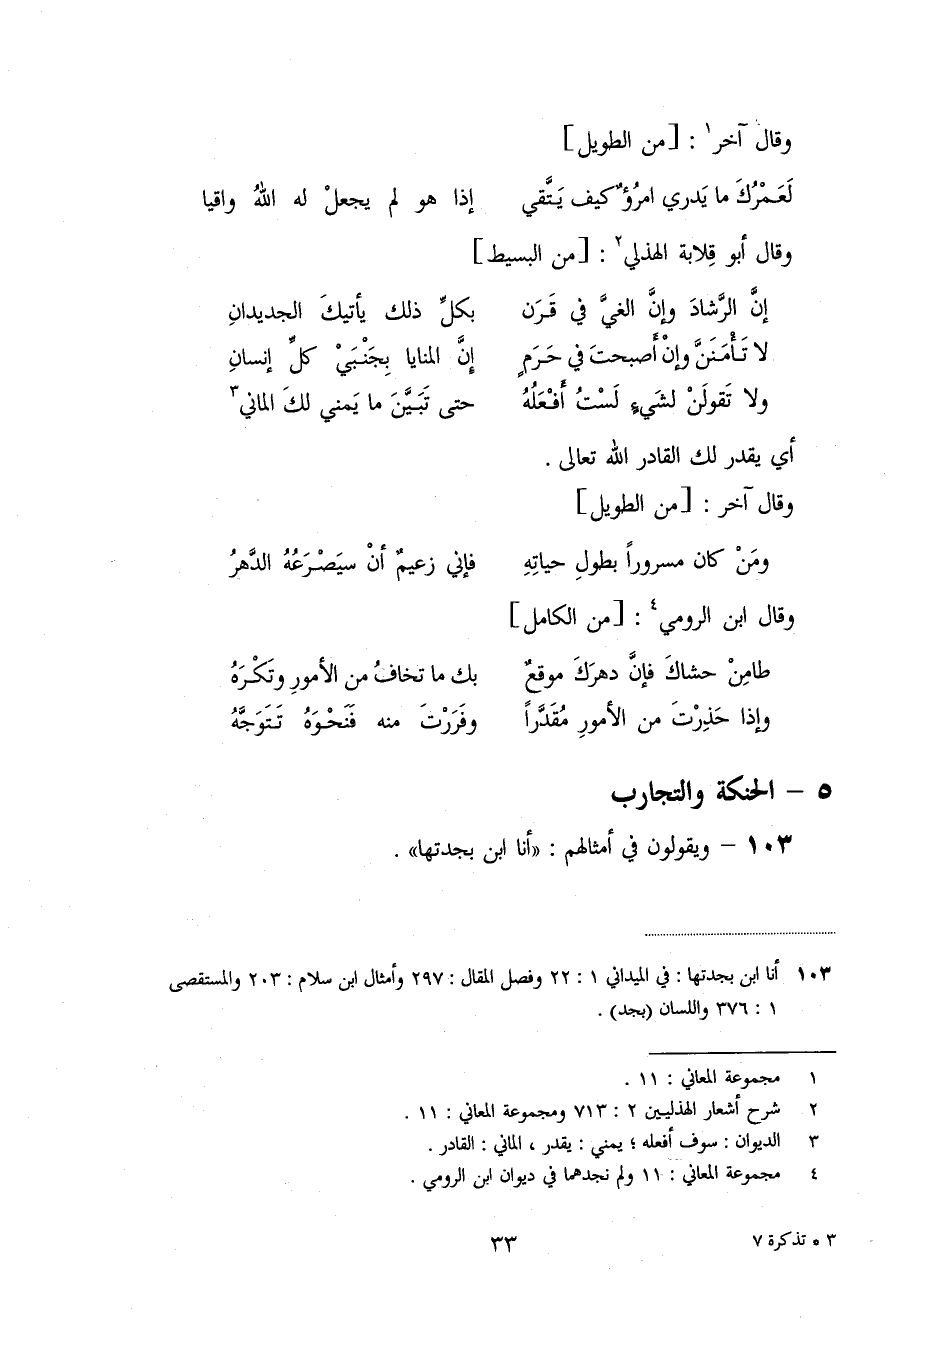 وقال آخر١ : [من الطويل]
لَعَمْرُكَ ما يَدري امرُؤٌ كيف يَتَّقي إذا هو لم يجعلْ له اللهُ واقيا
وقال أبو قِلابة الهذلي٢ : [من البسيط]
إنَّ الرَّشادَ وإنَّ الغيَّ في قَرَن بكلِّ ذلك يأتيكَ الجديدانِ
لا تَأْمَنَنَّ وإنْ أصبحتَ في حَرَمٍ إنَّ المنايا بِجَنْبَيْ كلِّ إنسانِ
ولا تَقولَنْ لشَيءٍ لَسْتُ أَفْعَلُهُ حتى تَبَيَّنَ ما يَمني لكَ الماني٣
أي يقدر لك القادر الله تعالى .
وقال آخر : [من الطويل]
ومَنْ كان مسروراً بطولِ حياتِهِ فإني زعيمٌ أنْ سيَصْرَعُهُ الدَّهرُ
وقال ابن الرومي٤ : [من الكامل]
طامِنْ حشاكَ فإنَّ دهرَكَ موقعٌ بك ما تخافُ من الأمورِ وتَكْرَهُ
وإذا حَذِرْتَ من الأمورِ مُقَدَّراً وفَرَرْتَ منه فَنَحْوَهُ تَتَوَجَّهُ
٥ – الحنكة والتجارب
١٠٣ – ويقولون في أمثالهم : «أنا ابن بجدتها» .
١٠٣ أنا ابن بجدتها : في الميداني ١ : ٢٢ وفصل المقال : ٢٩٧ وأمثال ابن سلام : ٢٠٣ والمستقصى
١ : ٣٧٦ واللسان (بجد) .
١ مجموعة المعاني : ١١ .
٢ شرح أشعار الهذليين ٢ : ٧١٣ ومجموعة المعاني : ١١ .
٣ الديوان : سوف أفعله ؛ يمني : يقدر ، الماني : القادر .
٤ مجموعة المعاني : ١١ ولم نجدهما في ديوان ابن الرومي .
٣ * تذكرة ٧ ٣٣